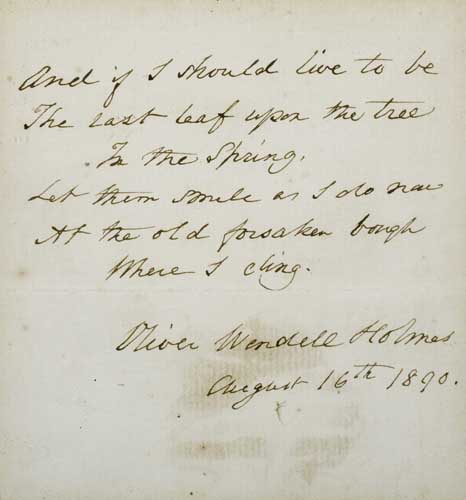 And if I should live to be
The last leaf upon the tree
In the Spring.
Let them smile as I do now
At the old forsaken bough
Where I cling.
Oliver Wendell Holmes
August 16th 1890.